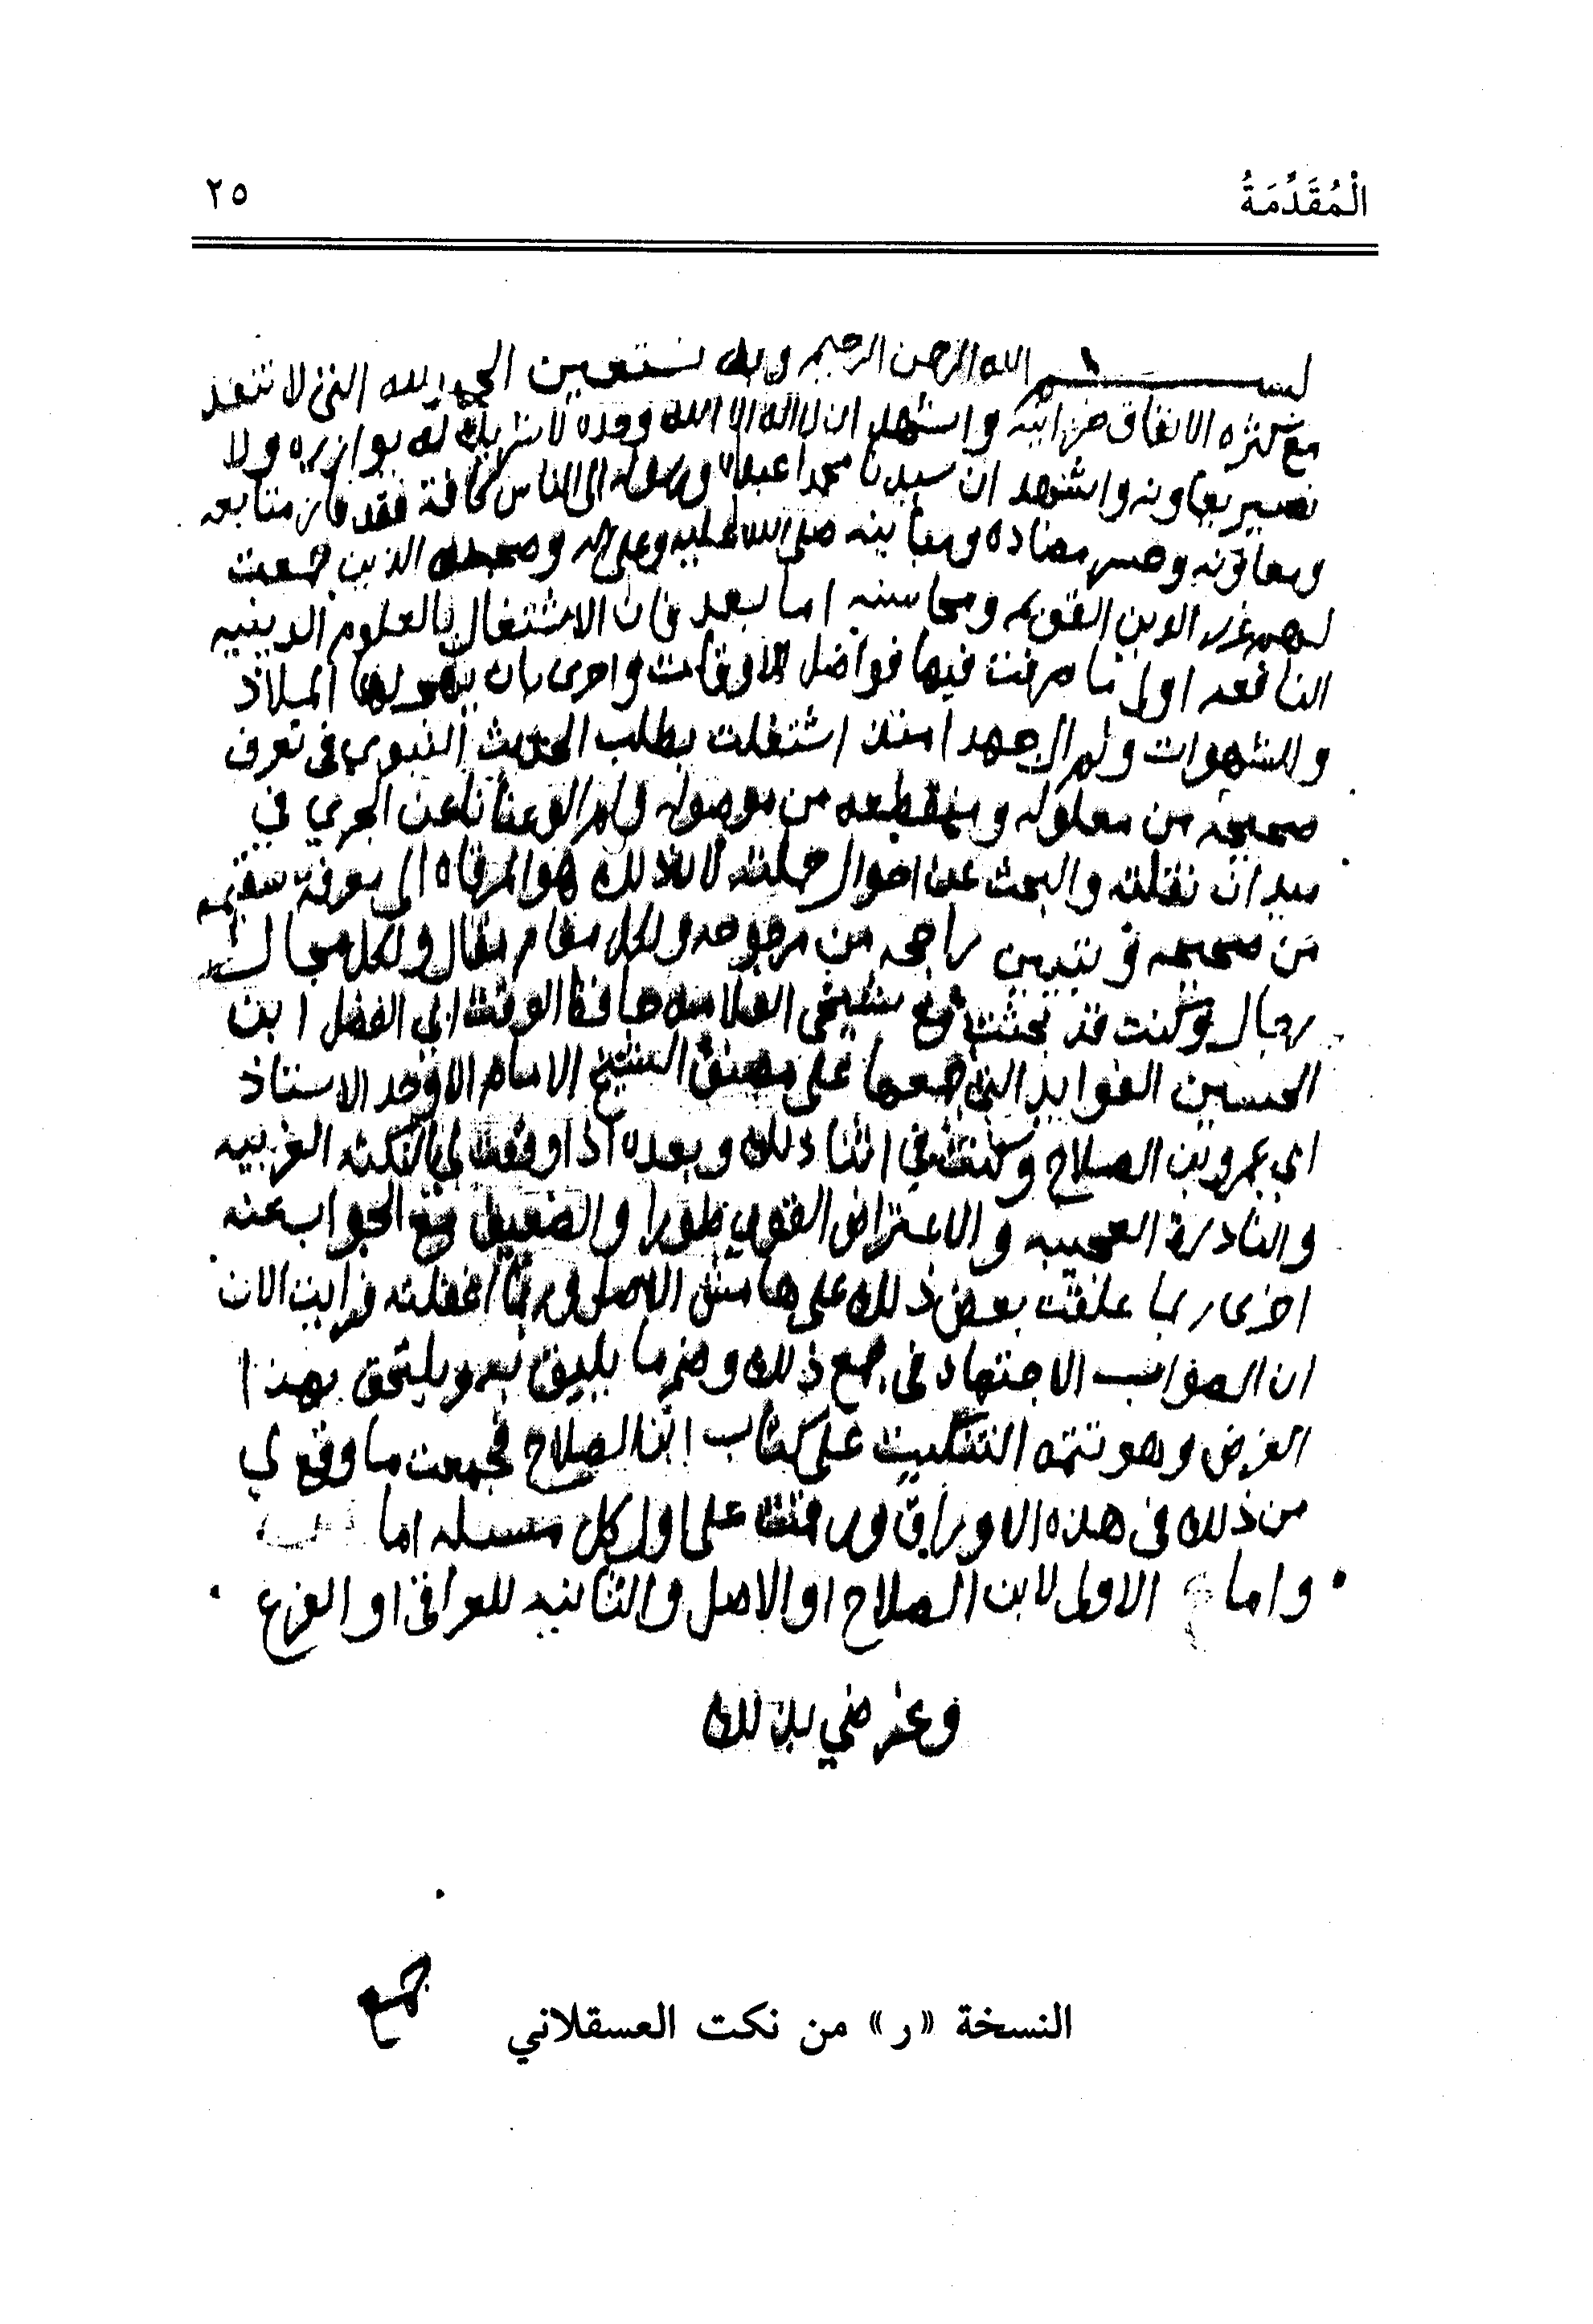 الْمُقَدِّمَةُ
٢٥
بسم الله الرحمن الرحيم وبه نستعين الحمد لله الذي لا تنفد
مع كثره الانفاق خزائنه واشهد ان لا اله الا الله وحده لا شريك له يوازره ولا
نصير يعاونه واشهد ان سيدنا محمدا عبده ورسوله الى الناس كافة فقد فاز متابعه
ومعاونه وخسر مضاده ومباينه صلى الله عليه وعلى اله وصحبه الذين جمعت
لهم غرر الدين القويم ومحاسنه اما بعد فان الاشتغال بالعلوم الدينيه
النافعه اولى ما صرفت فيها فواضل الاوقات واحرى بان يهجر لها الملاذ
والشهوات ولم ال جهدا منذ اشتغلت بطلب الحديث النبوي في تعرف
صحيحه من معلوله ومنقطعه من موصوله ولم الو عنانا عن الجري في
ميدان نقلته والبحث عن احوال حملته لان ذلك هو المرقاه الى معرفة سقيمه
من صحيحه وتبيين راجحه من مرجوحه ولكل مقام مقال ولكل مجال
رجال وكنت قد بحثت مع شيخي العلامه حافظ الوقت ابي الفضل ابن
الحسين الفوايد التي جمعها على مصنف الشيخ الامام الاوحد الاستاذ
ابي عمرو بن الصلاح وكنت في اثنا ذلك وبعده اذا وقعت لي النكته الغريبه
والنادرة العجيبه والاعتراض القوي طورا والضعيف مع الجواب عنه
اخرى ربما علقت بعض ذلك على هامش الاصل وربما اغفلته فرايت الان
ان الصواب الاجتهاد في جمع ذلك وضم ما يليق به ويلتحق بهذا
الغرض وهو تتمه التنكيت على كتاب ابن الصلاح فجمعت ما وقع لي
من ذلك في هذه الاوراق ورقمت على اول كل مسىله اما
واما ع الاولى لابن الصلاح او الاصل والثانيه للعراقي او الفرع
وغرضي بذلك
جمع
النسخة «ر» من نكت العسقلاني